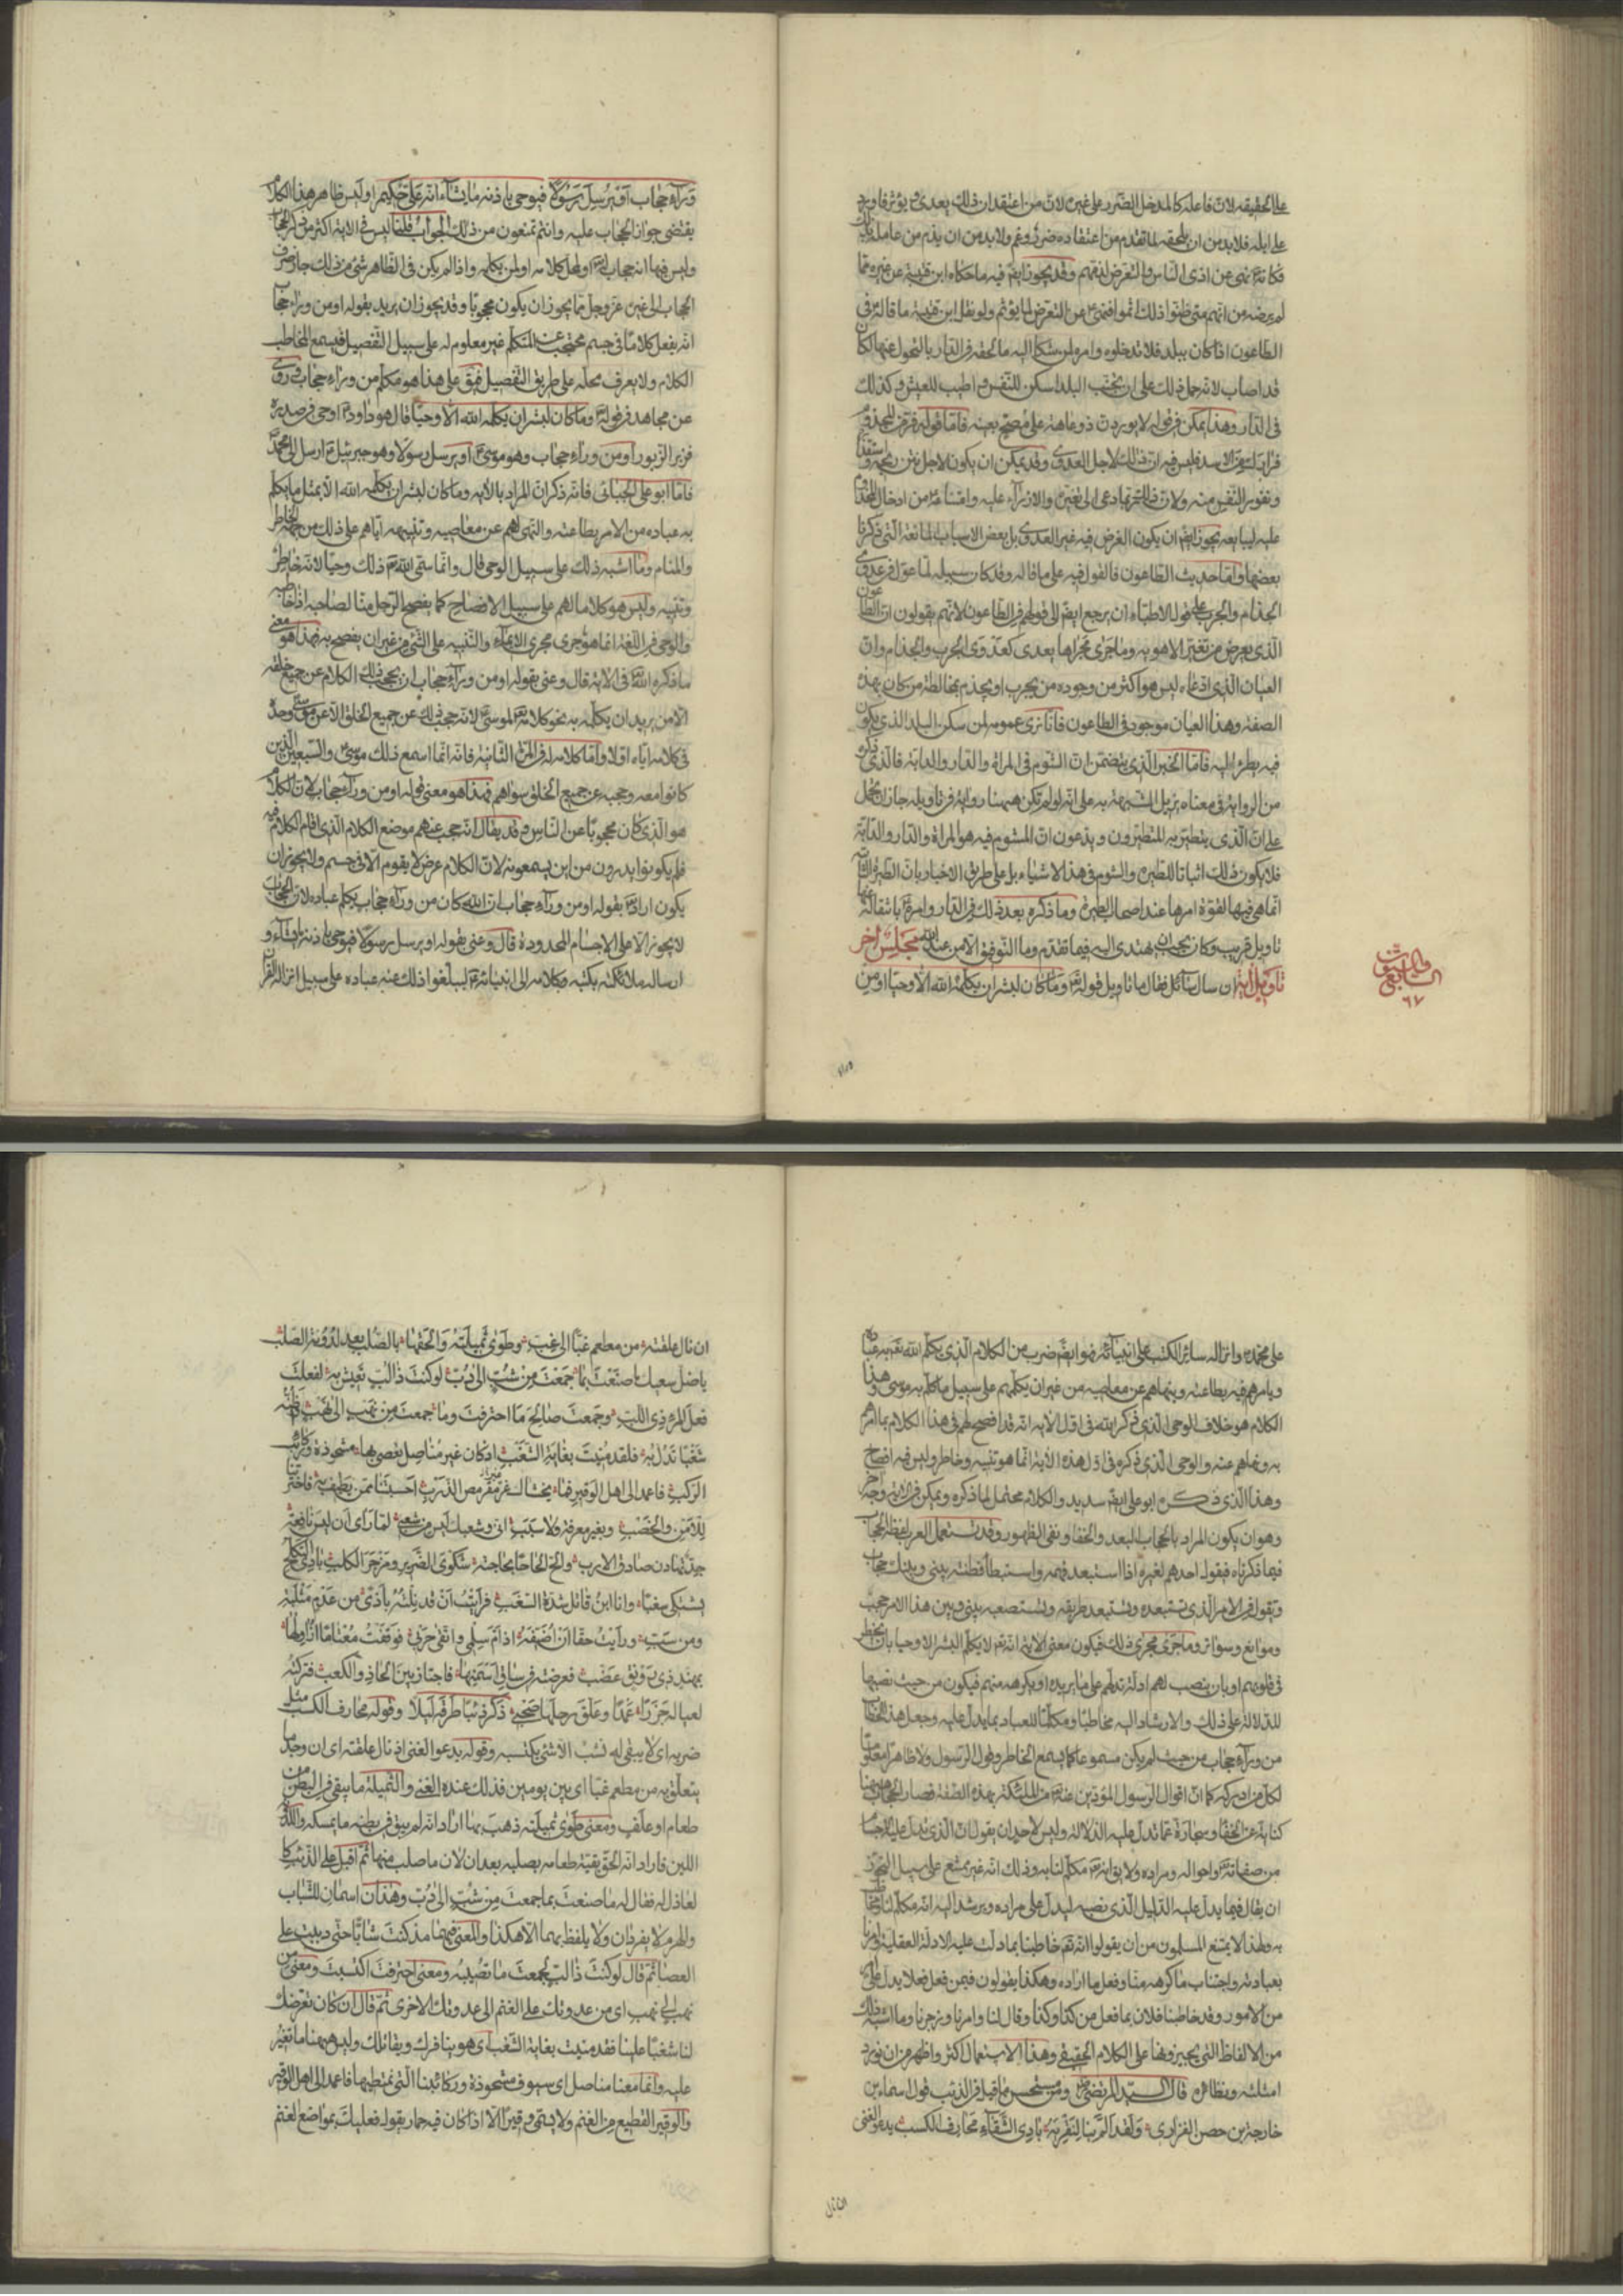 على الحقيقة لان فاعله كالمدخل الضرر على غيره لان من اعتقد ان ذلك يعدى و يؤثر فاورد
على ابله فلا بد من ان يلحقه لما تقدم من اعتقاده ضرر وغم ولا بد من ان يذم من عامله بذلك
فكانه نهى عن اذى الناس والتعرض لذمهم وقد يجوز ايضا فيه ما حكاه ابن قتيبة عن غيره مما
لم يرضه من انهم متى ظنوا ذلك اثموا فنهى عن التعرض لما يؤثم ولو نقل ابن قتيبة ما قاله في
الطاعون اذا كان ببلد فلا تدخلوه وامره لمن شكا اليه ما لحقه في الدار بالتحول عنها لكان
قد اصاب لانه حمل ذلك على ان تجنب البلد اسكن للنفس واطيب للعيش وكذلك
في الدار وهذا يمكن في قوله لا يوردن ذو عاهة على مصح بعينه فاما قوله فر من المجذوم
فرارك من الاسد فليس فيه ان ذلك لاجل العدوى وقد يمكن ان يكون لاجل نتن ريحه واستقذاره
ونفور النفس منه ولان ذلك ربما دعى الى تعييره والازراء عليه وامتناعه من ادخال المجذوم
عليه ليبايعه يجوز ايضا ان يكون الغرض فيه غير العدوى بل بعض الاسباب المانعة التي ذكرنا
بعضها واما حديث الطاعون فالقول فيه على ما قاله وقد كان سبيله لما عول في عدوى
الجذام والجرب على قول الاطباء ان يرجع ايضا الى قولهم في الطاعون لانهم يقولون ان الطاعون
الذي يعرض من تغير الاهوية وما جرى مجراها يعدى كعدوى الجرب والجذام وان
العيان الذي ادعاه ليس هو اكثر من وجوده من يجرب او يجذم بمخالطة من كان بهذه
الصفة وهذا العيان موجود في الطاعون فانا نرى عمومه لمن سكن البلد الذي يكون
فيه يطرا اليه فاما الخبر الذي يتضمن ان الشوم في المراة والدار والدابة فالذي ذكره
من الرواية في معناه يزيل الشبهة به على انه لو لم تكن ههنا رواية في تاويله جاز ان يحمل
على ان الذي يتطير به المتطيرون ويدعون ان الشوم فيه هو المراة والدار والدابة
فلا يكون ذلك اثباتا للطيرة والشوم في هذه الاشياء بل على طريق الاخبار بان الطيرة الثابتة
انما هي فيها لقوة امرها عند اصحاب الطيرة وما ذكره بعد ذلك في الدار وامره بانتقاله عنها
تاويل قريب وكان يجب ان يهتدى اليه فيما تقدم وما التوفيق الا من عند الله مجلس اخر
تاويل اية ان سال سائل فقال ما تاويل قوله تع وما كان لبشر ان يكلمه الله الا وحيا او من
٦٧
وراء حجاب او يرسل رسولا فيوحى باذنه ما يشاء انه على حكيم او ليس ظاهر هذا الكلام
يقتضى جواز الحجاب عليه وانتم تمنعون من ذلك الجواب قلنا ليس في الاية اكثر من ذكر الحجاب
وليس فيها انه حجاب له تع او لمحل كلامه او لمن يكلمه واذا لم يكن في الظاهر شىء من ذلك جاز صرف
الحجاب الى غيره عز وجل مما يجوز ان يكون محجوبا وقد يجوز ان يريد بقوله او من وراء حجاب
انه يفعل كلاما في جسم محتجب عن المتكلم غير معلوم له على سبيل التفصيل فيسمع المخاطب
الكلام ولا يعرف محله على طريق التفصيل فيق على هذا هو مكلم من وراء حجاب وروى
عن مجاهد في قوله تع وما كان لبشر ان يكلمه الله الا وحيا قال هو داود ع اوحى في صدره
فزبر الزبور او من وراء حجاب وهو موسى ع او يرسل رسولا وهو جبرئيل ع ارسل الى محمد
فاما ابو على الجبائى فانه ذكر ان المراد بالاية وما كان لبشر ان يكلمه الله الا بمثل ما يكلم
به عباده من الامر بطاعته والنهى لهم عن معاصيه وتنبيهه اياهم على ذلك من جهة الخاطر
والمنام وما اشبه ذلك على سبيل الوحى قال وانما سمى الله تع ذلك وحيا لانه خاطر
وتنبيه وليس هو كلاما لهم على سبيل الافصاح كما يفصح الرجل منا لصاحبه اذا خاطبه
والوحى في اللغة انما هو جرى مجرى الايماء والتنبيه على الشئ من غير ان يفصح به فهذا هو معنى
ما ذكره الله تع في الاية قال وعنى بقوله او من وراء حجاب ان يحجب ذلك الكلام عن جميع خلقه
الا من يريد ان يكلمه به نحو كلامه تع لموسى ع لانه حجب ذلك عن جميع الخلق الا عن موسى ع وحده
في كلامه اياه اولا واما كلامه له في المرة الثانية فانه انما اسمع ذلك موسى ع والسبعين الذين
كانوا معه وحجبه عن جميع الخلق سواهم فهذا هو معنى قوله او من وراء حجاب لان الكلام
هو الذي كان محجوبا عن الناس وقد يقال انه حجب عنهم موضع الكلام الذي اقام الكلام فيه
فلم يكونوا يدرون من اين يسمعونه لان الكلام عرض لا يقوم الا في جسم ولا يجوز ان
يكون اراد تع بقوله او من وراء حجاب ان الله كان من وراء حجاب يكلم عباده لان الحجاب
لا يجوز الا على الاجسام المحدودة قال وعنى بقوله او يرسل رسولا فيوحى باذنه ما يشاء و
ارساله ملائكته بكتبه وكلامه الى انبيائه ع ليبلغوا ذلك عنه عباده على سبيل انزاله القران
على محمد ص وانزاله سائر الكتب على انبيائه فهو ايضا ضرب من الكلام الذي يكلم الله تع به عباده
ويامرهم فيه بطاعته وينهاهم عن معاصيه من غير ان يكلمهم على سبيل ما كلم به موسى وهذا
الكلام هو خلاف الوحى الذي ذكر الله في اول الاية انه قد افصح لهم في هذا الكلام بما امرهم
به ونهاهم عنه والوحى الذي ذكره في اول هذه الاية انما هو تنبيه وخاطر وليس فيه افصاح
وهذا الذي ذكره ابو على ايضا سديد والكلام محتمل لما ذكره ويمكن في الاية وجه اخر
وهو ان يكون المراد بالحجاب البعد والخفا ونفى الظهور وقد تستعمل العرب لفظة الحجاب
فيما ذكرناه فيقول احدهم لغيره اذا استبعد فهمه واستبطا فطنته بينى وبينك حجاب
وتقول في الامر الذي تستبعده وتستبعد طريقه وتستصعبه بينى وبين هذا الامر حجب
وموانع وسواتر وما جرى مجرى ذلك فيكون معنى الاية انه تع لا يكلم البشر الا وحيا بان يخطر
في قلوبهم او بان ينصب لهم ادلة تدلهم على ما يريده او يكرهه منهم فيكون من حيث نصبها
للدلالة على ذلك والارشاد اليه مخاطبا ومكلما للعباد بما يدل عليه وجعل هذا الخطاب
من وراء حجاب من حيث لم يكن مسموعا كما يسمع الخاطر وقول الرسول ولا ظاهرا معلوما
لكل من ادركه كما ان اقوال الرسول المؤدين عنه تع من الملئكة بهذه الصفة فصار الحجاب ههنا
كناية عن الخفا وعبارة عما تدل عليه الدلالة وليس لاحد ان يقول ان الذي تدل عليه الاجسام
من صفاته تع واحواله ومراده ولا يق انه تع مكلم لنا به وذلك انه غير ممتنع على سبيل التجوز
ان يقال فيما يدل عليه الدليل الذي نصبه ليدل على مراده ويرشد اليه انه مكلم لنا ومخاطب
به ولهذا لا يمتنع المسلمون من ان يقولوا ان الله تع خاطبنا بما دلت عليه الادلة العقلية وامرنا
بعبادته واجتناب ما كرهه منا وفعل ما اراده وهكذا يقولون فيمن فعل فعلا يدل على
من الامور وقد خاطبنا فلان بما فعل من كذا وكذا وقال لنا وامرنا وزجرنا وما اشبه ذلك
من الالفاظ التي يجرونها على الكلام الحقيقى وهذا الاستعمال اكثر واظهر من ان نورد
امثلته ونظائره قال السيد المرتضى رض ومن مستحسن ما قيل في الذئب قول اسماء بن
خارجة بن حصن الفزارى ولقد الم بنا لنقريه بادى الشقاء محارف الكسب يدعو الغنى
ان نال علقته من مطعم غبا الى غب وطوى ثميلته والحقها بالصلب بعد لدونة الصلب
يا ضل سعيك ما صنعت بما جمعت من شب الى دب لو كنت ذا لب تعيش به لفعلت
فعل المرء ذى اللب وجمعت صالح ما احترفت وما جمعت من نهب الى نهب واظنه
شغبا تدل به فلقد منيت بغاية الشغب اذ كان غير مناصل نعصى بها مشحوذة وركائب
الركب فاعمد الى اهل الوقير فما يخشاك غير مقرمص الزرب احسبتنا ممن تطيف به فاخترتنا
للامن والخصب وبغير معرفة ولا سبب انى وشعبك ليس من شعبى لما راى ان ليس نافعه
جد تهاون صادق الارب والح الحاحا بحاجته شكوى الضرير ومزجر الكلب بادى التكلح
يشتكى سغبا وانا ابن قاتل شدة السغب فرايت ان قد نلته باذى من عذم مثلبة
ومن سب ورايت حقا ان اضيفه اذ ام سلمى واتقى حربى فوقفت معتاما ازاولها
بمهند ذى رونق عضب فعرضته في ساق اسمنها فاجتاز بين الحاذ والكعب فتركته
لعياله جزرا عمدا وعلق رحلها صحبى ذكر ذئبا طرقه ليلا وقوله محارف الكسب مثل
ضربه اى لا يبقى له نشب الا شئ يكتسبه وقوله يدعو الغنى ان نال علقته اى ان وجد ما
يتعلق به من مطعم غبا اى بين يومين فذلك عنده الغنى والثميلة ما يبقى في البطن من
طعام او علف ومعنى طوى ثميلته ذهب بها اراد انه لم يبق في بطنه ما يمسكه واللدونة
اللين فاراد انه الحق بقية طعامه بصلبه بعد ان لان ما صلب منها ثم اقبل على الذئب كا
لعاذل له فقال له ما صنعت بما جمعت من شب الى دب وهذان اسمان للشباب
والهرم لا يفردان ولا يلفظ بهما الا هكذا والمعنى فيهما مذ كنت شابا حتى دببت على
العصا ثم قال لو كنت ذا لب لجمعت ما تصيبه ومعنى احترفت اكتسبت ومعنى من
نهب الى نهب اى من عدوتك على الغنم الى عدوتك الاخرى ثم قال ان كان تعرضك
لنا شغبا علينا فقد منيت بغاية الشغب اى هو يتافرك ويقاتلك وليس ههنا ما تغير
عليه وانما معنا مناصل اى سيوف مشحوذة وركائبنا التى نمتطيها فاعمد الى اهل الوقير
والوقير القطيع من الغنم ولا يسمى وقيرا الا اذا كان فيه حمار يقول فعليك بمواضع الغنم